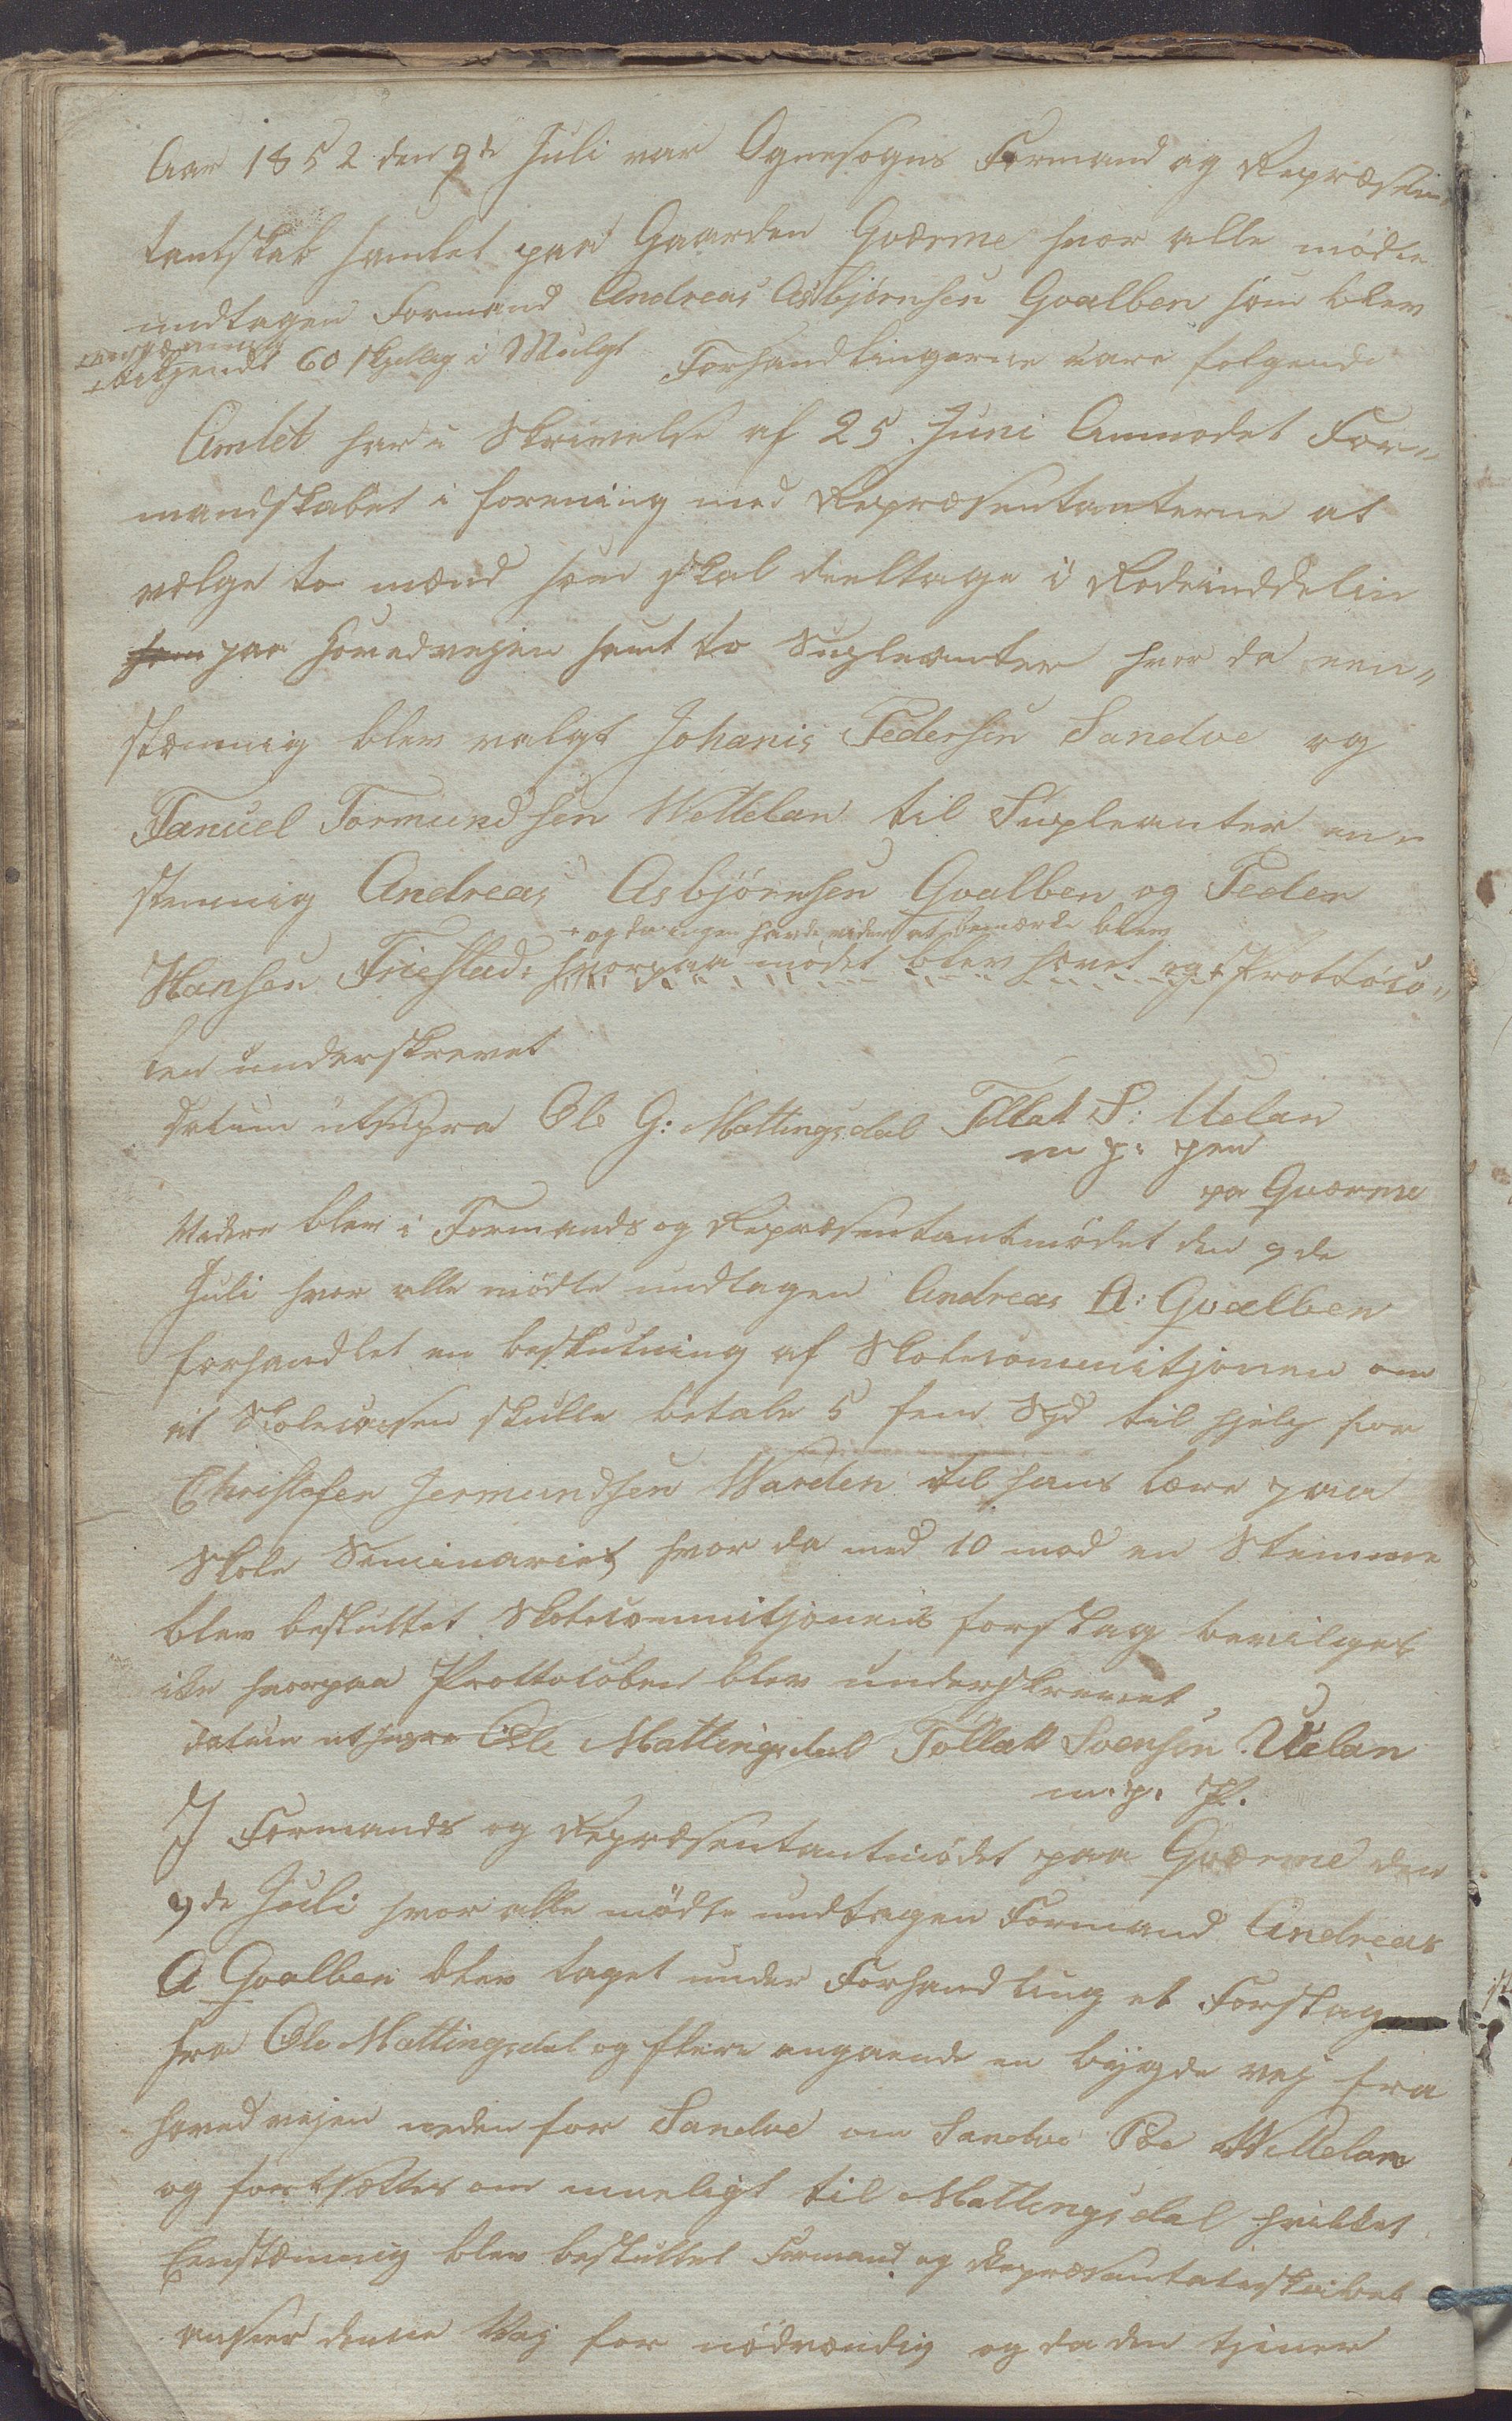 Aar 1852 den 9de Juli var Ognesogns Formand og Repræsen
tantskab samlet paa Gaarden Qværme hvor alle mødte
undtagen Formand Andreas Asbjørnsen Qvalben som blev
eenstemmig
tilkjendt 60 skelling i Mulgt Forhandlingerne vare følgende
Amtet har i Skrivelse af 25 Juni Anmodet For„
mandskabet i forening med Repræsentanterne at
vælge to mænd som skal deeltage i Rodeinddelin
som paa hovedvejen samt to Supleanter hvor da een„
stemmig blev valgt Johanis Pedersen Sandve og
Tanuel Tormundsen Wettelan til Supleanter een
stemmig Andreas Asbjørnsen Qvalben og Peder
+ og da ingen havde viden at bemærke blev
Hansen Friestad: hvorpaa mødet blev hævet og + Prottoco„
len underskrevet
datum utsupra Ole G: Mattingsdal Tollak S: Uelan
m p: pen
pa Qværme
Videre blev i Formands og Repræsentantmødet den 9de
Juli hvor alle mødte undtagen Andreas A: Qvalben
forhandlet en beslutning af Skolecommitjonen om
at Skolecasen skulle betale 5 fem Spd til hjelp for
Christofer Jermundsen Warden til hans lære paa
Skole Seminariet, hvor da med 10 mod en Stemme
blev besluttet Skolecommitjonens forslag bevilget
ike hvorpaa Prottocolen blev underskrevet
datum utsupra Ole Mattingsdal Tollak Svensen Uelan
m. p. P.
I Formands og Repræsentantmødet paa Qværme den
9de Juli hvor alle mødte undtagen Formand Andreas
A Qvalben blev taget under Forhandling et Forslag
fra Ole Mattingsdal og flere angaaende en bygde vej fra
hovedvejen neden for Sandve om Sandve Wettelan
og fortsættes om mueligt til Mattingsdal hvilket
Eenstemmig blev besluttet Formand og Repræsentatsskabet
anseer denne Vej for nødvendig og da den tjener